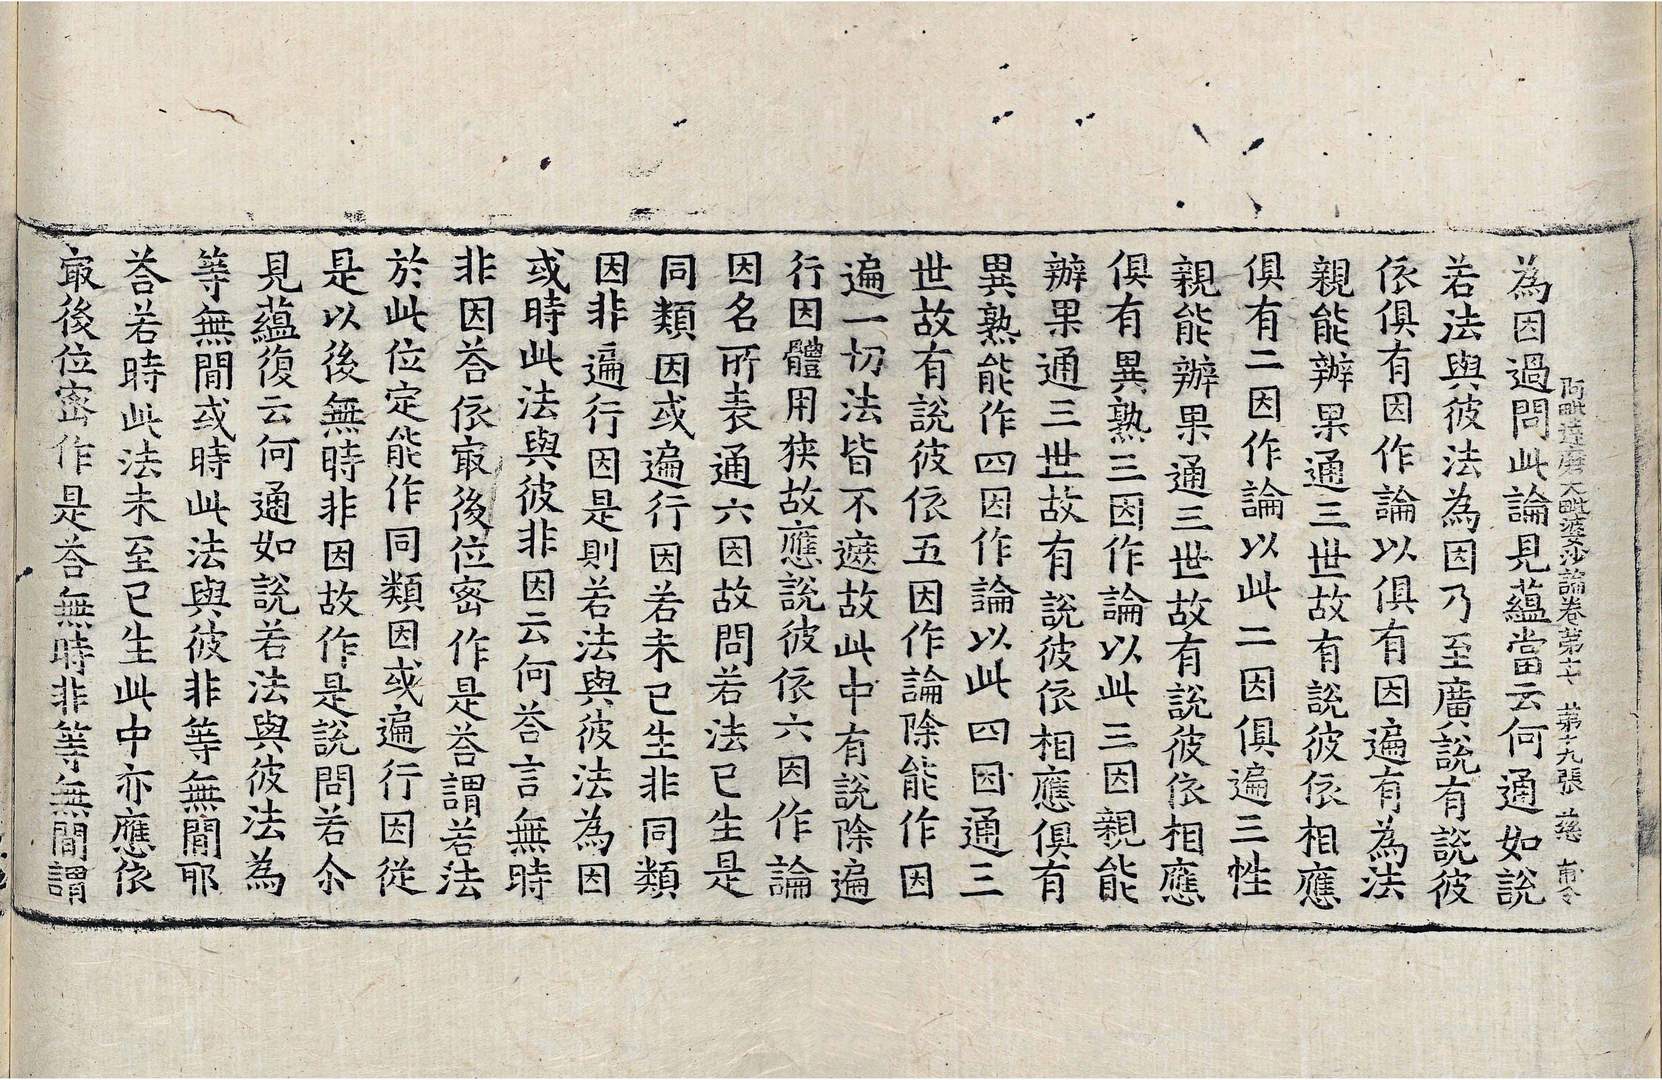 阿毗達磨大毗婆沙論卷第十七 第十九張 慈
為因過問此論見蘊當云何通如說
若法與彼法為因乃至廣說有說彼
依俱有因作論以俱有因遍有為法
親能辦果通三世故有說彼依相應
俱有二因作論以此二因俱遍三性
親能辦果通三世故有說彼依相應
俱有異熟三因作論以此三因親能
辦果通三世故有說彼依相應俱有
異熟能作四因作論以此四因通三
世故有說彼依五因作論除能作因
遍一切法皆不遮故此中有說除遍
行因體用狹故應說彼依六因作論
因名所表通六因故問若法已生是
同類因或遍行因若未已生非同類
因非遍行因是則若法與彼法為因
或時此法與彼非因云何答言無時
非因荅依㝡後位密作是荅謂若法
於此位定能作同類因或遍行因從
是以後無時非因故作是說問若尒
見蘊復云何通如說若法與彼法為
等無間或時此法與彼非等無間耶
荅若時此法未至已生此中亦應依
㝡後位密作是荅無時非等無間謂